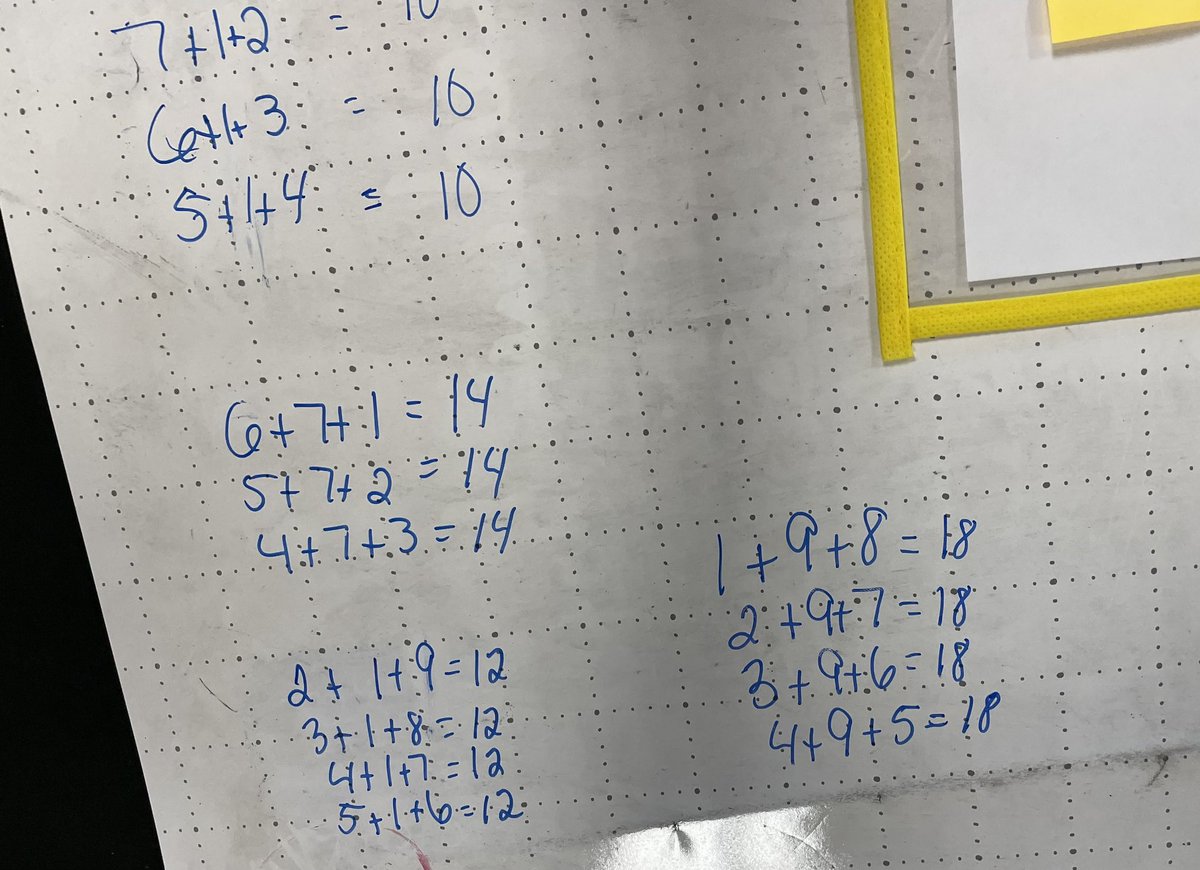 7+1+2 = 10
6+1+3 = 10
5+1+4 = 10
6+7+1 = 14
5+7+2 = 14
4+7+3 = 14
2+1+9=12
3+1+8=12
4+1+7=12
5+1+6=12
1+9+8=18
2+9+7=18
3+9+6=18
4+9+5=18